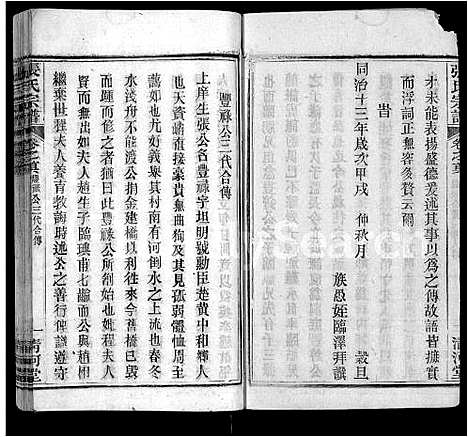 張氏宗譜
才未能表揚盛德爰述其事以爲之傳故語摭實
而浮詞正不容多贅云爾
旹
同治十三年歲次甲戌 仲秋月 穀旦
族愚姪臨澤拜譔
清河堂
豐祿公三代合傳
上庠生張公名豐祿字坦明號勳臣楚黃中和驛人
也天資雄豪貴無曲狥及其見孤弱體恤周主
藹如也尤好義舉其村南有河倒水之上流也春冬
水淺舟不能渡公捐金建橋以利往來今舊橋已毀
而人之繼修者猶曰此豐祿公所創始也娶程夫人
賢而無出夫人趙生子臨璵甫七齡而公與趙相
繼棄世程夫人養育教誨時述公之善行俾謹遵守
張氏宗譜
豐祿公三代合傳
一
清河堂